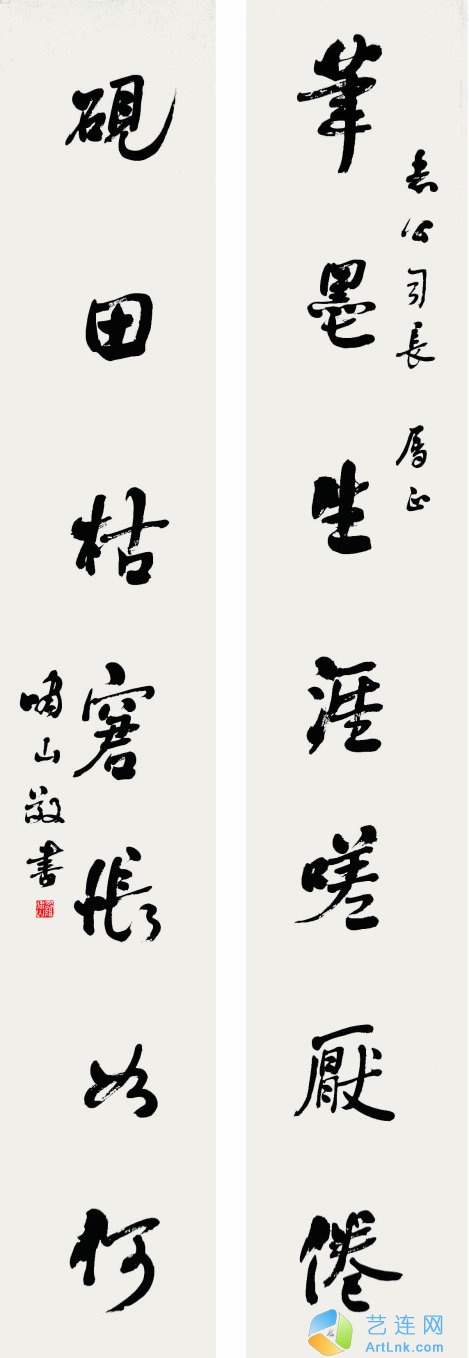 公司長 属正
筆墨生涯嗟厭倦
硯田枯窘悵如何
嘯山敬書
艺连网
ArtLnk.com